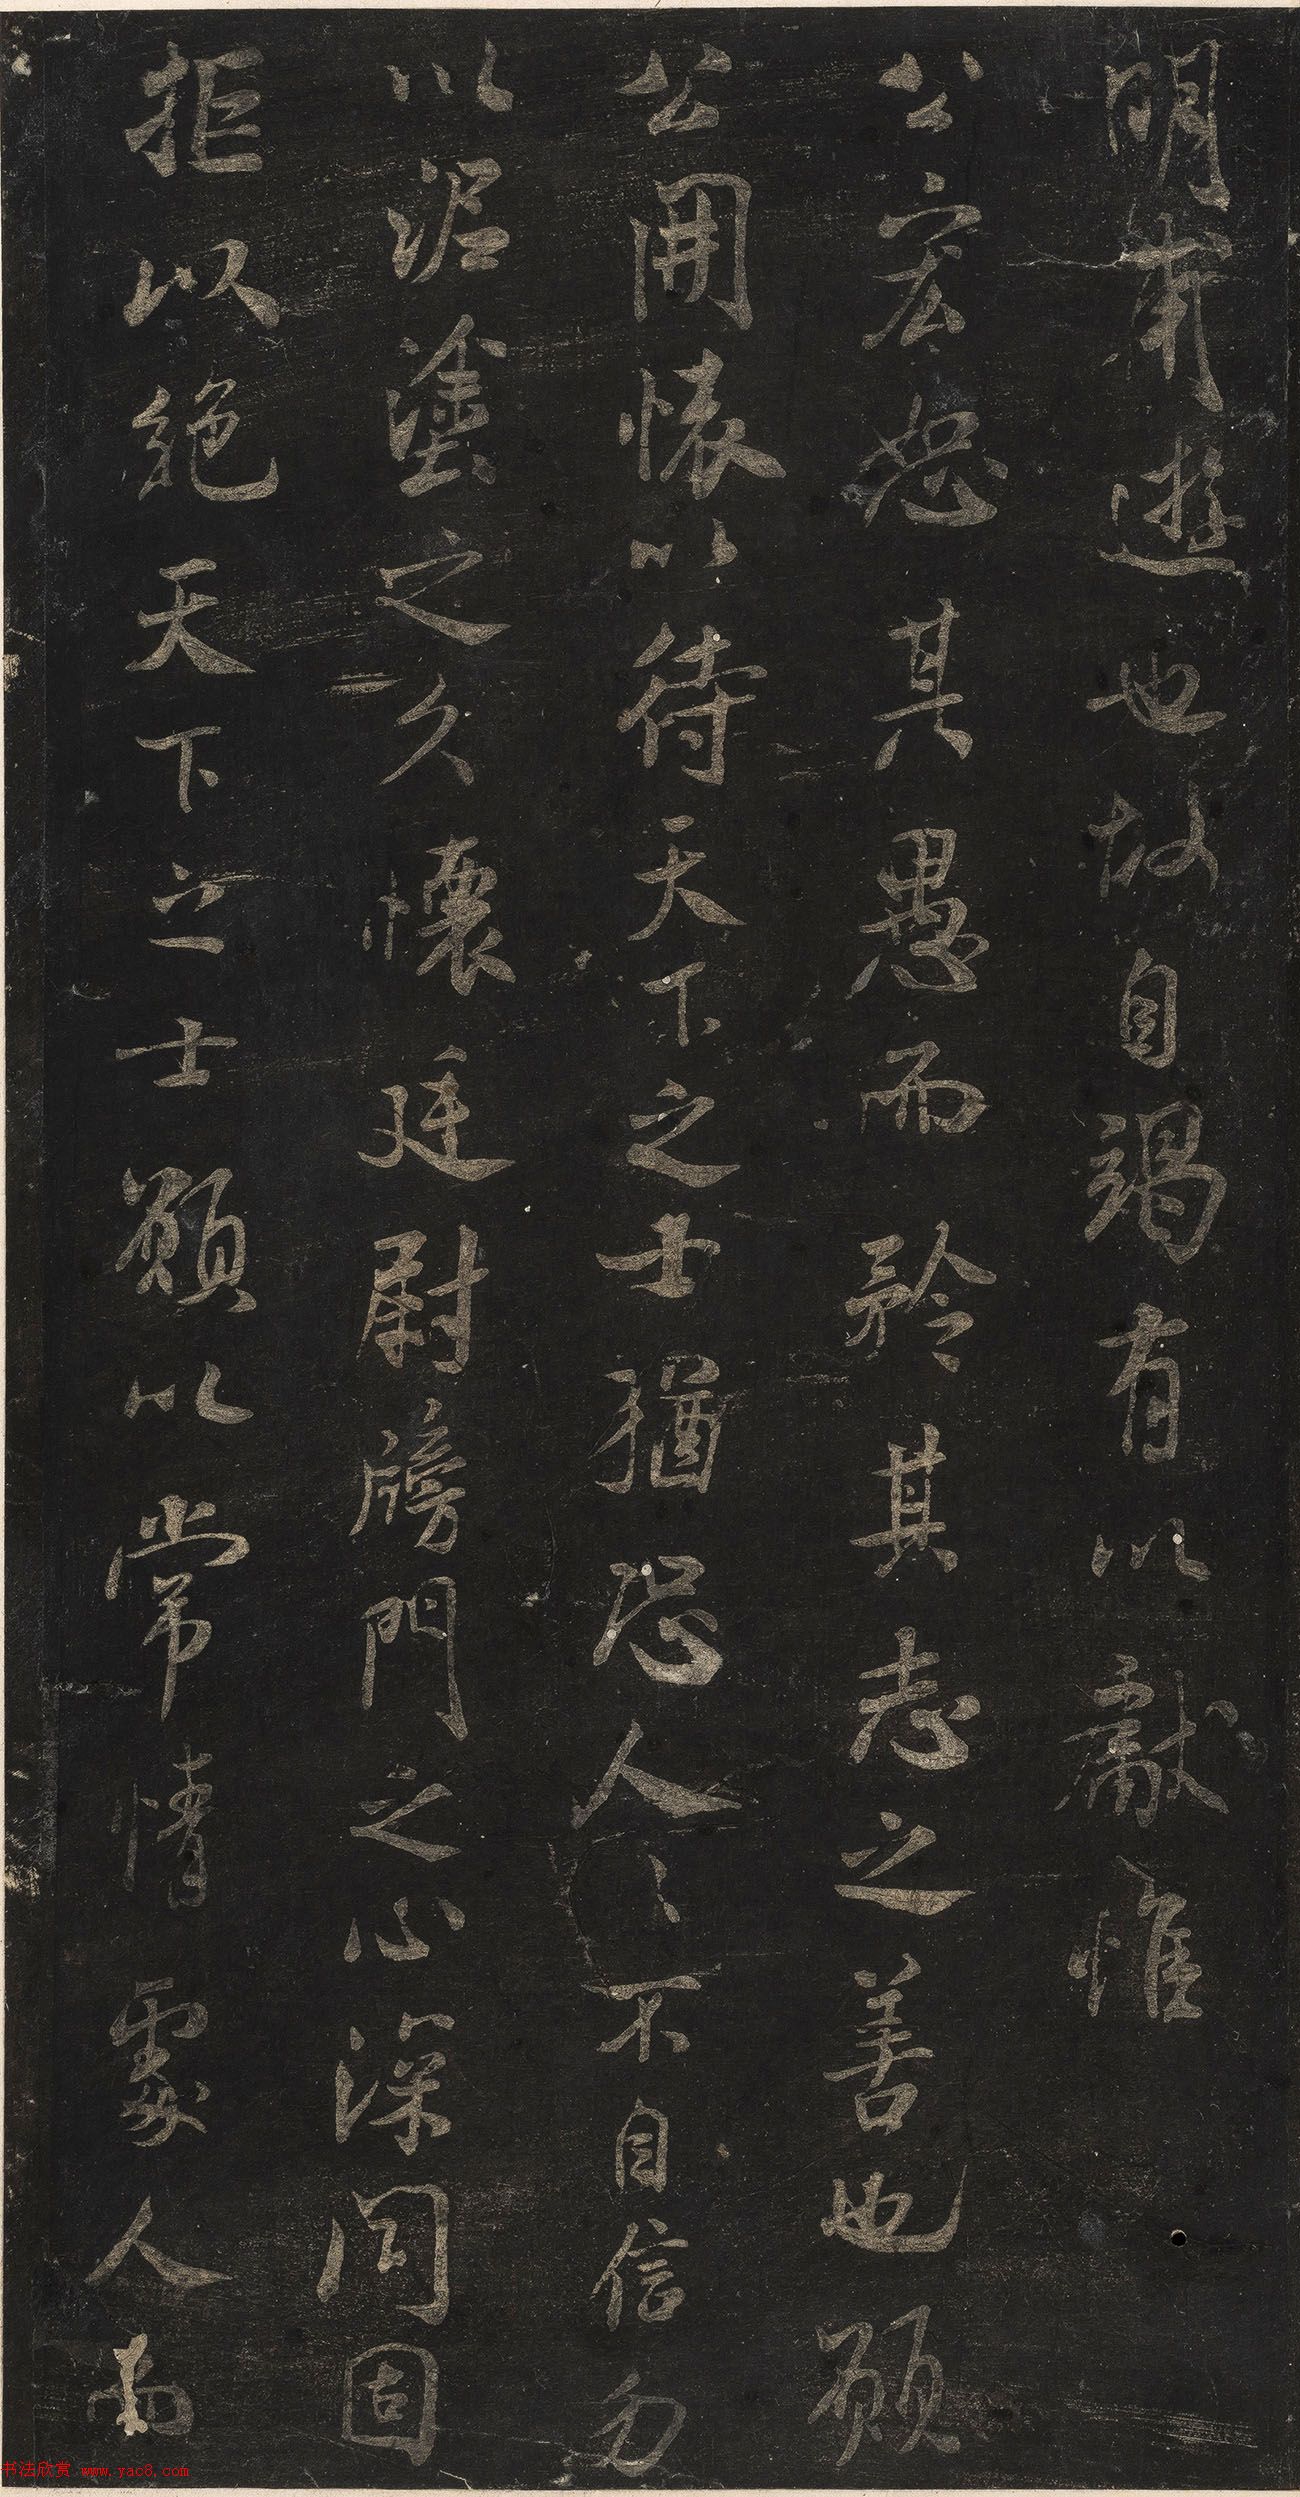 明甫遊也故自竭有以獻惟
公宏恕其愚而矜其志之善也願
公開懷以待天下之士猶恐人々不自信勿
以泥塗之久懷廷尉牓門之心深閉固
拒以絕天下之士顧以常情處人
书法欣赏 www.yac8.com